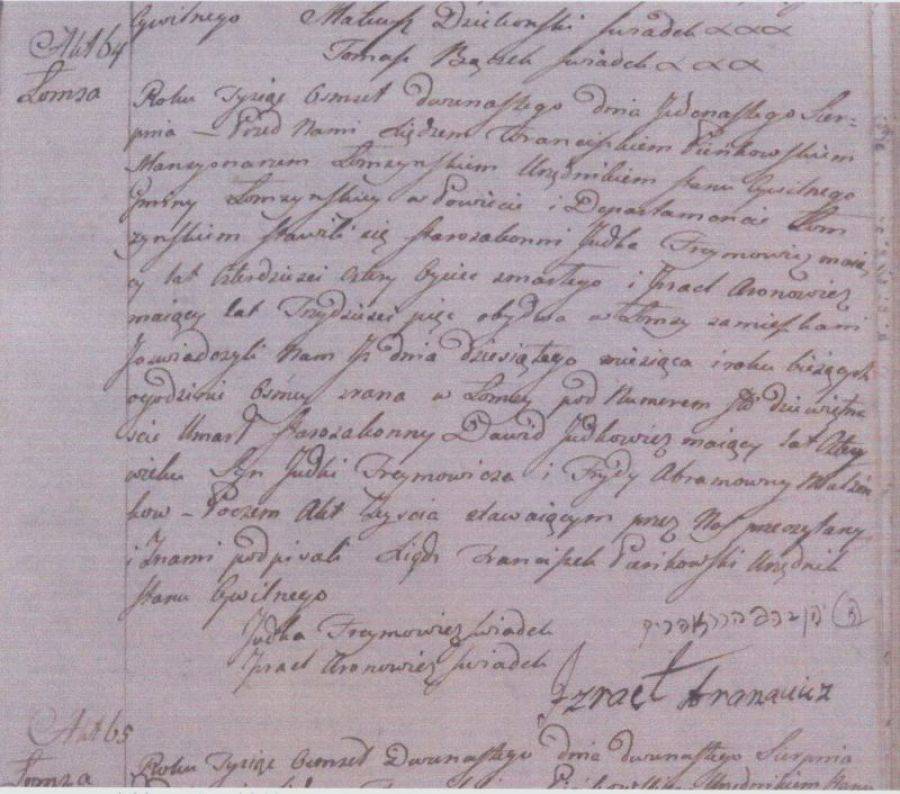 Cywilnego Mateusz Dziekoński świadek xxx
Tomasz Bączek świadek xxx
Akt 64
Łomża
Roku Tysiąc Osmset dwunastego dnia Jedenastego Sier=
pnia – Przed Nami Xiędzem Franciszkiem Pieńkowskiem
Mansyonarzem Łomzynskiem Urzędnikiem stanu Cywilnego
Gminy Łomzynskiey w Powiecie i Departamencie Łom
zynskiem stawili się starozakonni Judka Freymowicz maią
cy lat Czterdziesci Cztery Oyciec zmarłego i Izrael Aronowicz
maiący lat Trzydziesci pięc obydwa w Łomzy zamieszkani
Joswiadczyli Nam Iż dnia dziesiątego miesiąca i roku bieżących
ogodzinie Osmey zrana w Łomzy pod Numerem Sto dziewiętna
scie Umarł starozakonny Dawid Judkowicz maiący lat
wieku Syn Judki Freymowicza i Frydy Abramowny Małżon
kow – Poczem Akt Zeyscia stawaiącym przez Nas przeczytany
i Znami podpisali Xiądz Franciszek Pieńkowski Urzędnik
stanu Cywilnego
Judka Freymowicz świadek
Izrael Aronowicz świadek
Izrael Aranawicz
Akt 65
Łomża
Roku Tysiąc Osmset Dwunastego dnia dwunastego Sierpnia